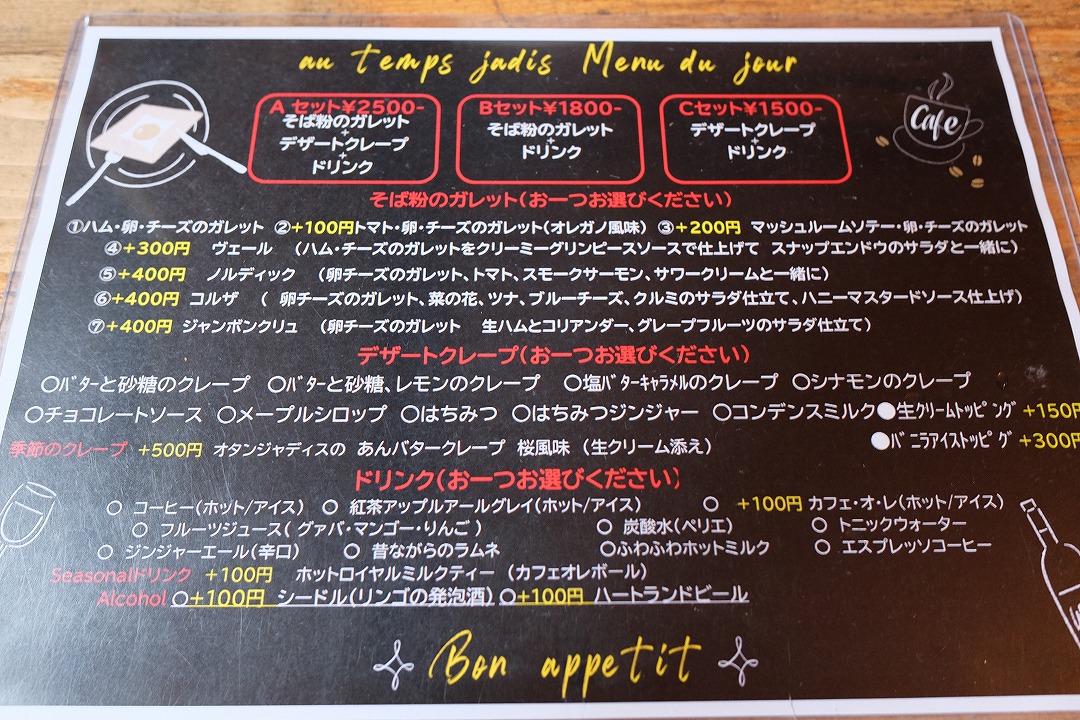 au temps jadis Menu du jour
A セット¥2500-
そば粉のガレット
+
デザートクレープ
+
ドリンク
Bセット¥1800-
そば粉のガレット
+
ドリンク
Cセット¥1500-
デザートクレープ
+
ドリンク
Cafe
そば粉のガレット(お一つお選びください)
①ハム・卵・チーズのガレット ②+100円トマト・卵・チーズのガレット(オレガノ風味) ③+200円 マッシュルームソテー・卵・チーズのガレット
④+300円 ヴェール (ハム・チーズのガレットをクリーミーグリンピースソースで仕上げて スナップエンドウのサラダと一緒に)
⑤+400円 ノルディック (卵チーズのガレット、トマト、スモークサーモン、サワークリームと一緒に)
⑥+400円 コルザ ( 卵チーズのガレット、菜の花、ツナ、ブルーチーズ、クルミのサラダ仕立て、ハニーマスタードソース仕上げ)
⑦+400円 ジャンボンクリュ (卵チーズのガレット 生ハムとコリアンダー、グレープフルーツのサラダ仕立て)
デザートクレープ(お一つお選びください)
○バターと砂糖のクレープ ○バターと砂糖、レモンのクレープ ○塩バターキャラメルのクレープ ○シナモンのクレープ
○チョコレートソース ○メープルシロップ ○はちみつ ○はちみつジンジャー ○コンデンスミルク●生クリームトッピング +150円
●バニラアイストッピグ +300円
季節のクレープ +500円 オタンジャディスの あんバタークレープ 桜風味 (生クリーム添え)
ドリンク(お一つお選びください)
○ コーヒー(ホット/アイス) ○ 紅茶アップルアールグレイ(ホット/アイス) ○ +100円 カフェ・オ・レ(ホット/アイス)
○ フルーツジュース( グァバ・マンゴー・りんご ) ○ 炭酸水(ペリエ) ○ トニックウォーター
○ ジンジャーエール(辛口) ○ 昔ながらのラムネ ○ふわふわホットミルク ○ エスプレッソコーヒー
Seasonalドリンク +100円 ホットロイヤルミルクティー (カフェオレボール)
Alcohol ○+100円 シードル(リンゴの発泡酒) ○+100円 ハートランドビール
Bon appetit